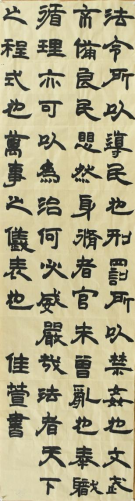 法令所以導民也刑罰所以禁姦也文武
不備良民愳然身脩者官未曾亂也奉職
循理亦可以為治何必威嚴哉法者天下
之程式也萬事之儀表也 佳萱書